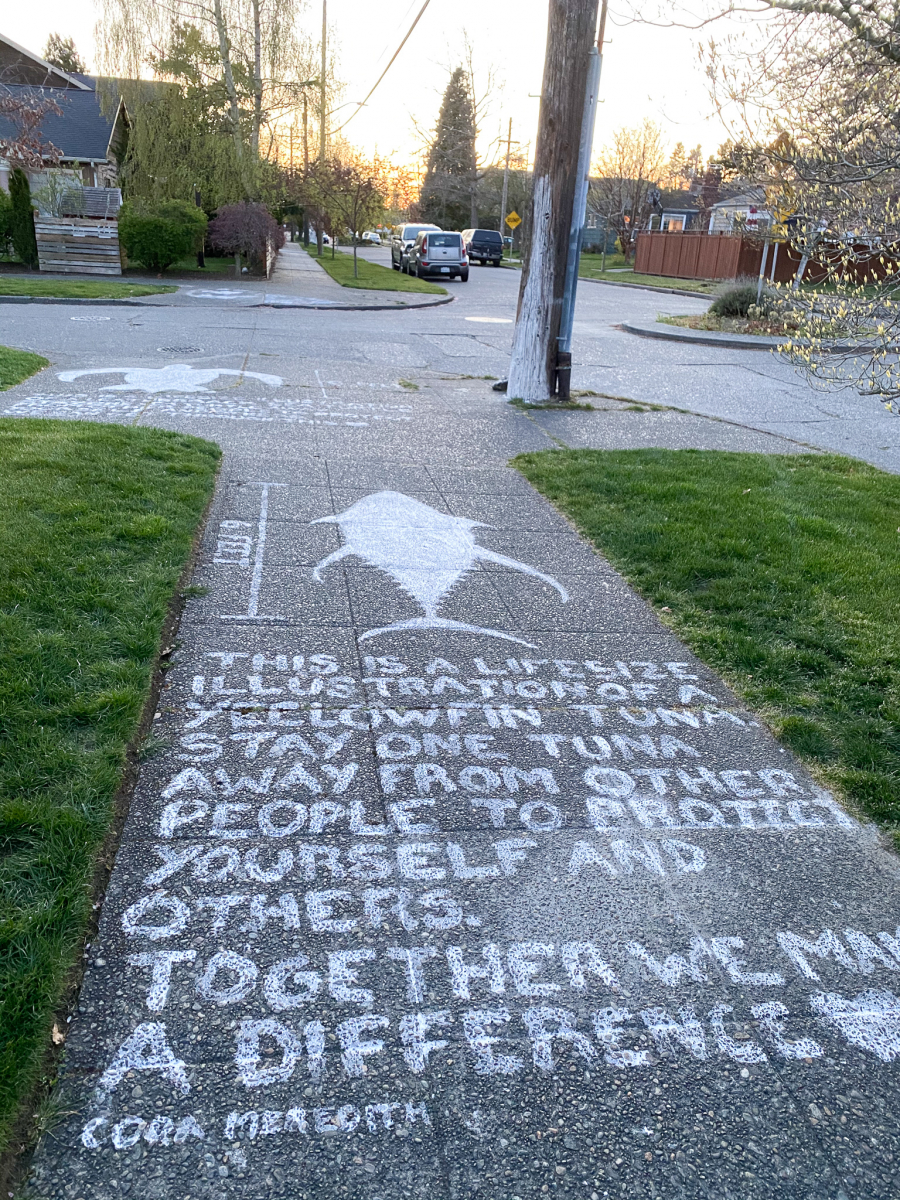 THIS IS A LIFESIZE
ILLUSTRATION OF A
YELLOWFIN TUNA
STAY ONE TUNA
AWAY FROM OTHER
PEOPLE TO PROTECT
YOURSELF AND
OTHERS.
TOGETHER WE MAK
A DIFFERENCE
CORA MEREDITH